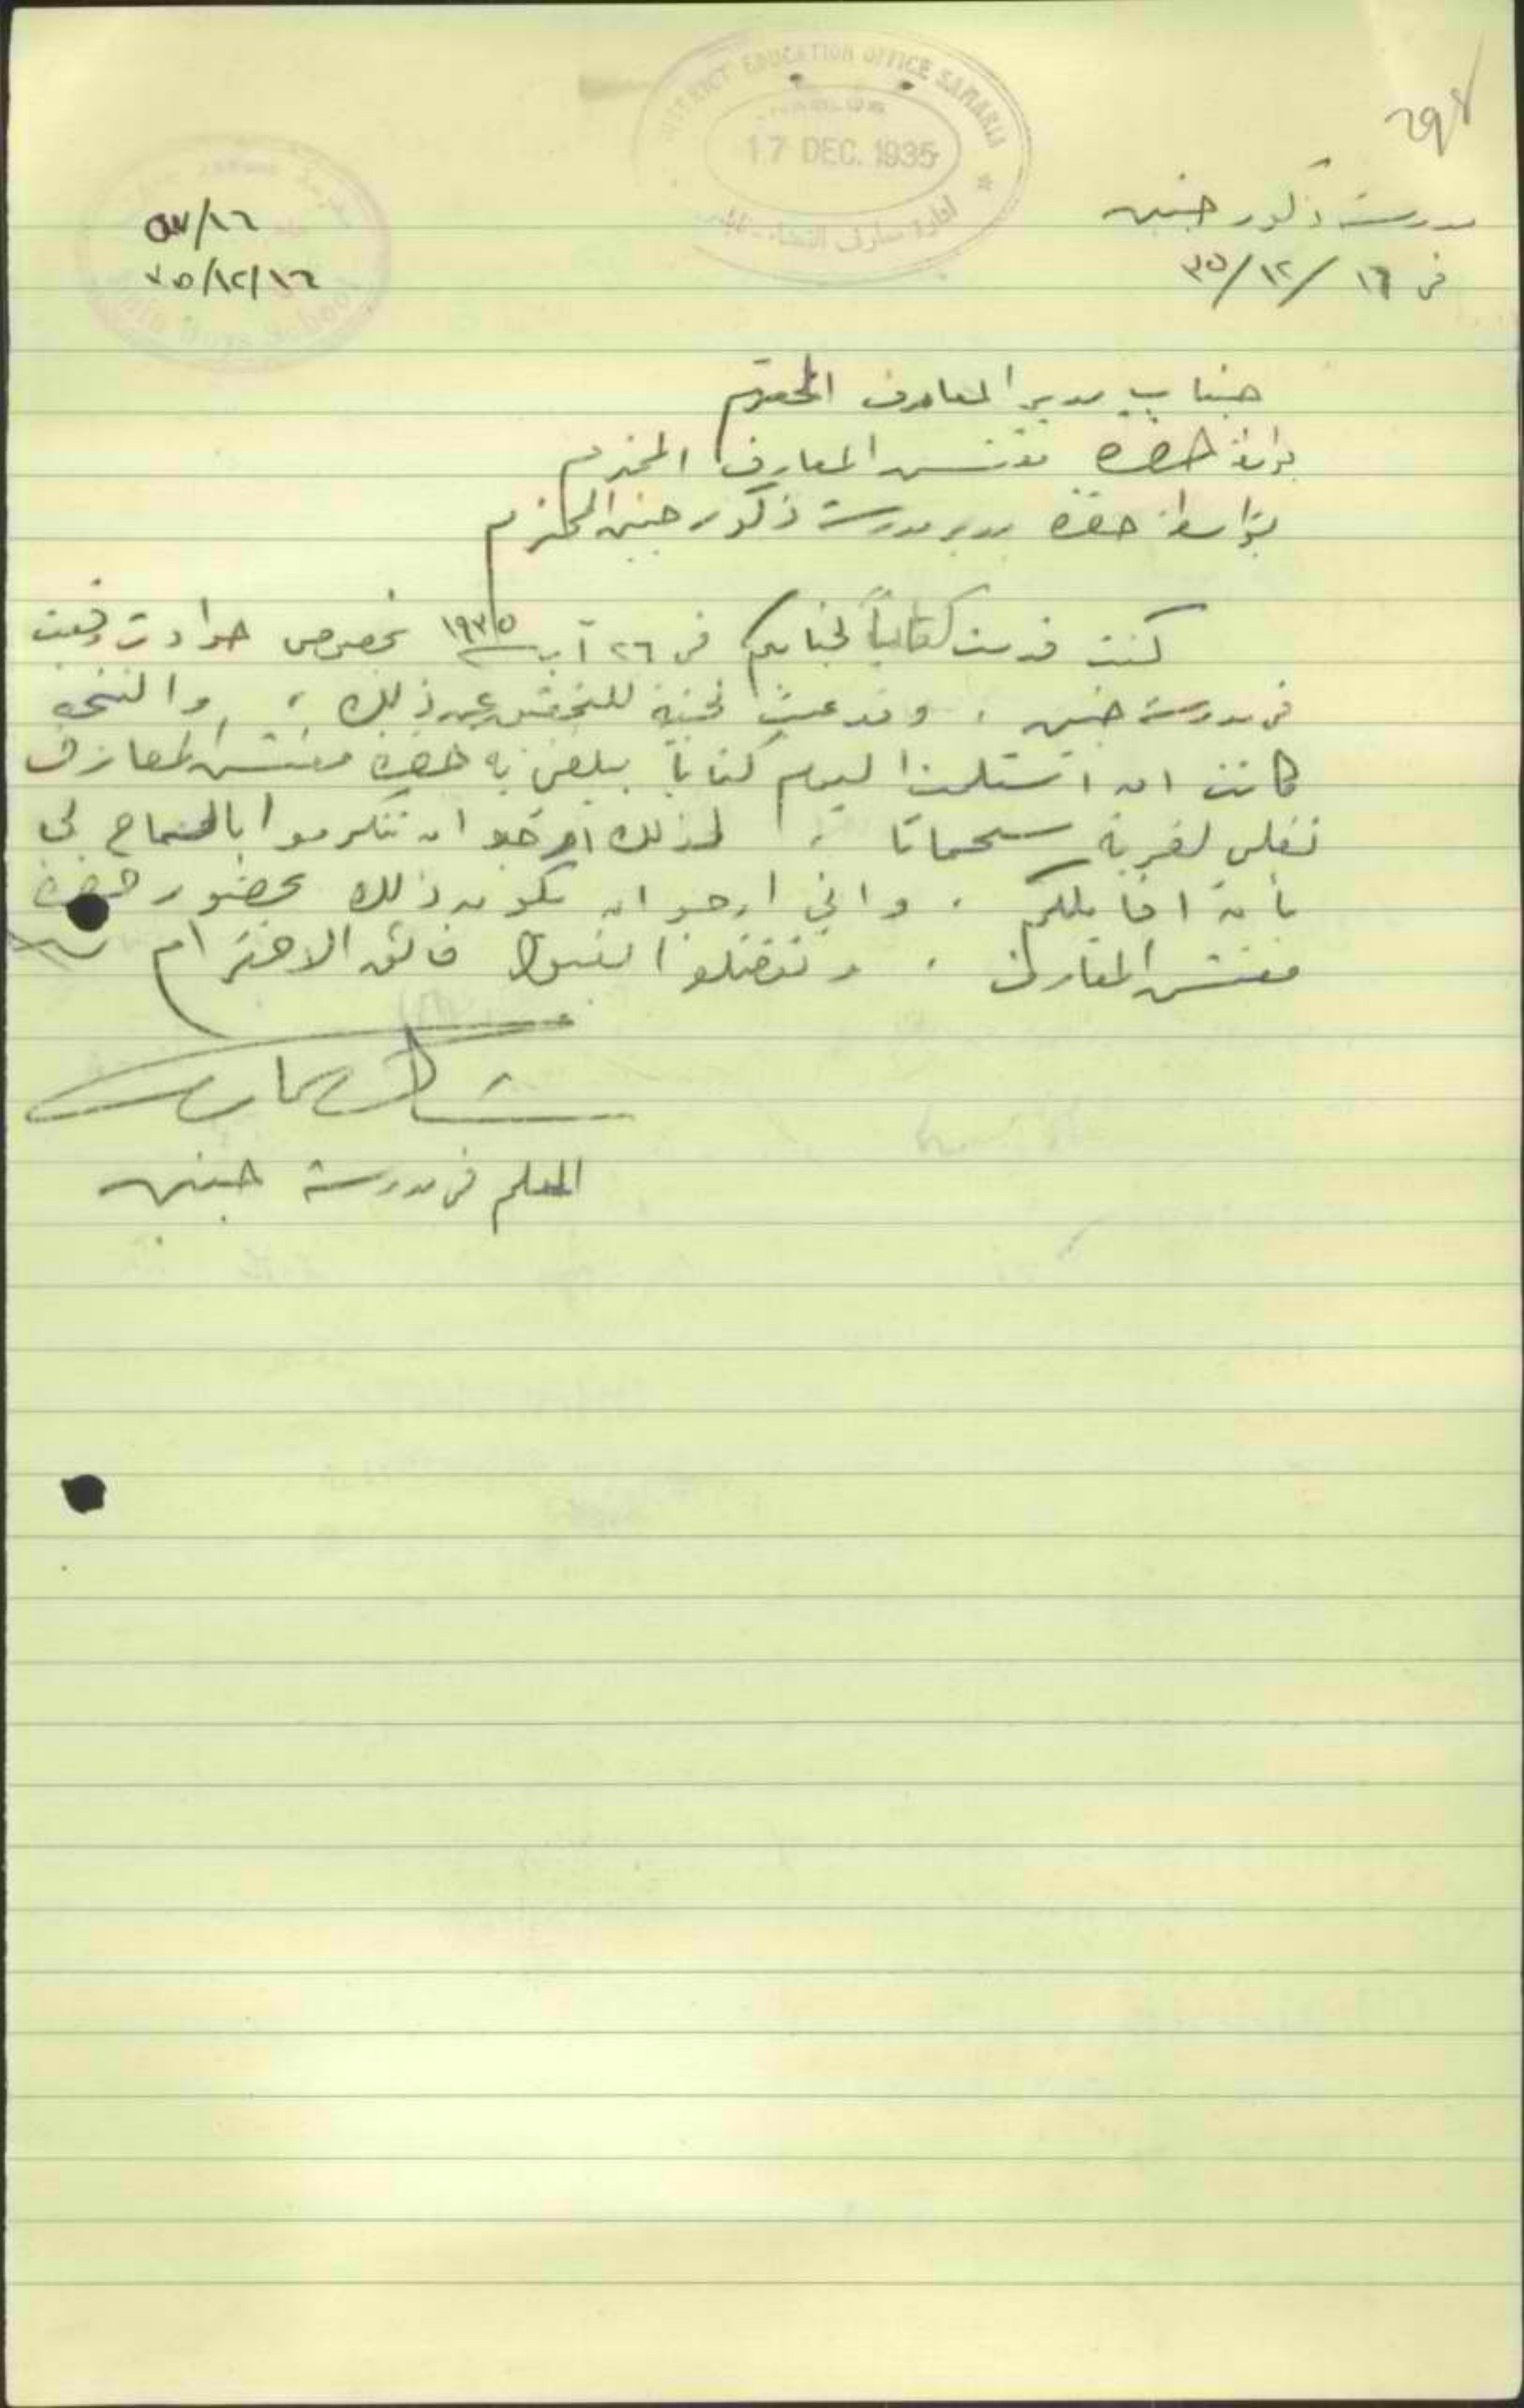 298
DISTRICT EDUCATION OFFICE SAMARIA
NABLUS
17 DEC. 1935
٥٧/١٦
٣٥/١٢/١٦
مدرسة ذكور جنين
في ١٦/ ١٢/ ٣٥
جناب مدير المعارف المحترم
بواسطة حضرة مفتش المعارف المحترم
بواسطة حضرة مدير مدرسة ذكور جنين المحترم
كنت قدمت كتاباً لجنابكم في ٢٦ آب ١٩٣٥ بخصوص حوادث وقعت
في مدرسة جنين . وقد عينت لجنة للتحقيق عن ذلك ، والنتيجة
كانت ان استلمت اليوم كتاباً يبلغني به حضرة مفتش المعارف
نقلي لقرية سحماتا . لذلك ارجو ان تتكرموا بالسماح لي
بأن اقابلكم . واني ارجو ان يكون ذلك بحضور حضرة
مفتش المعارف . وتفضلوا بقبول فائق الاحترام
المعلم في مدرسة جنين